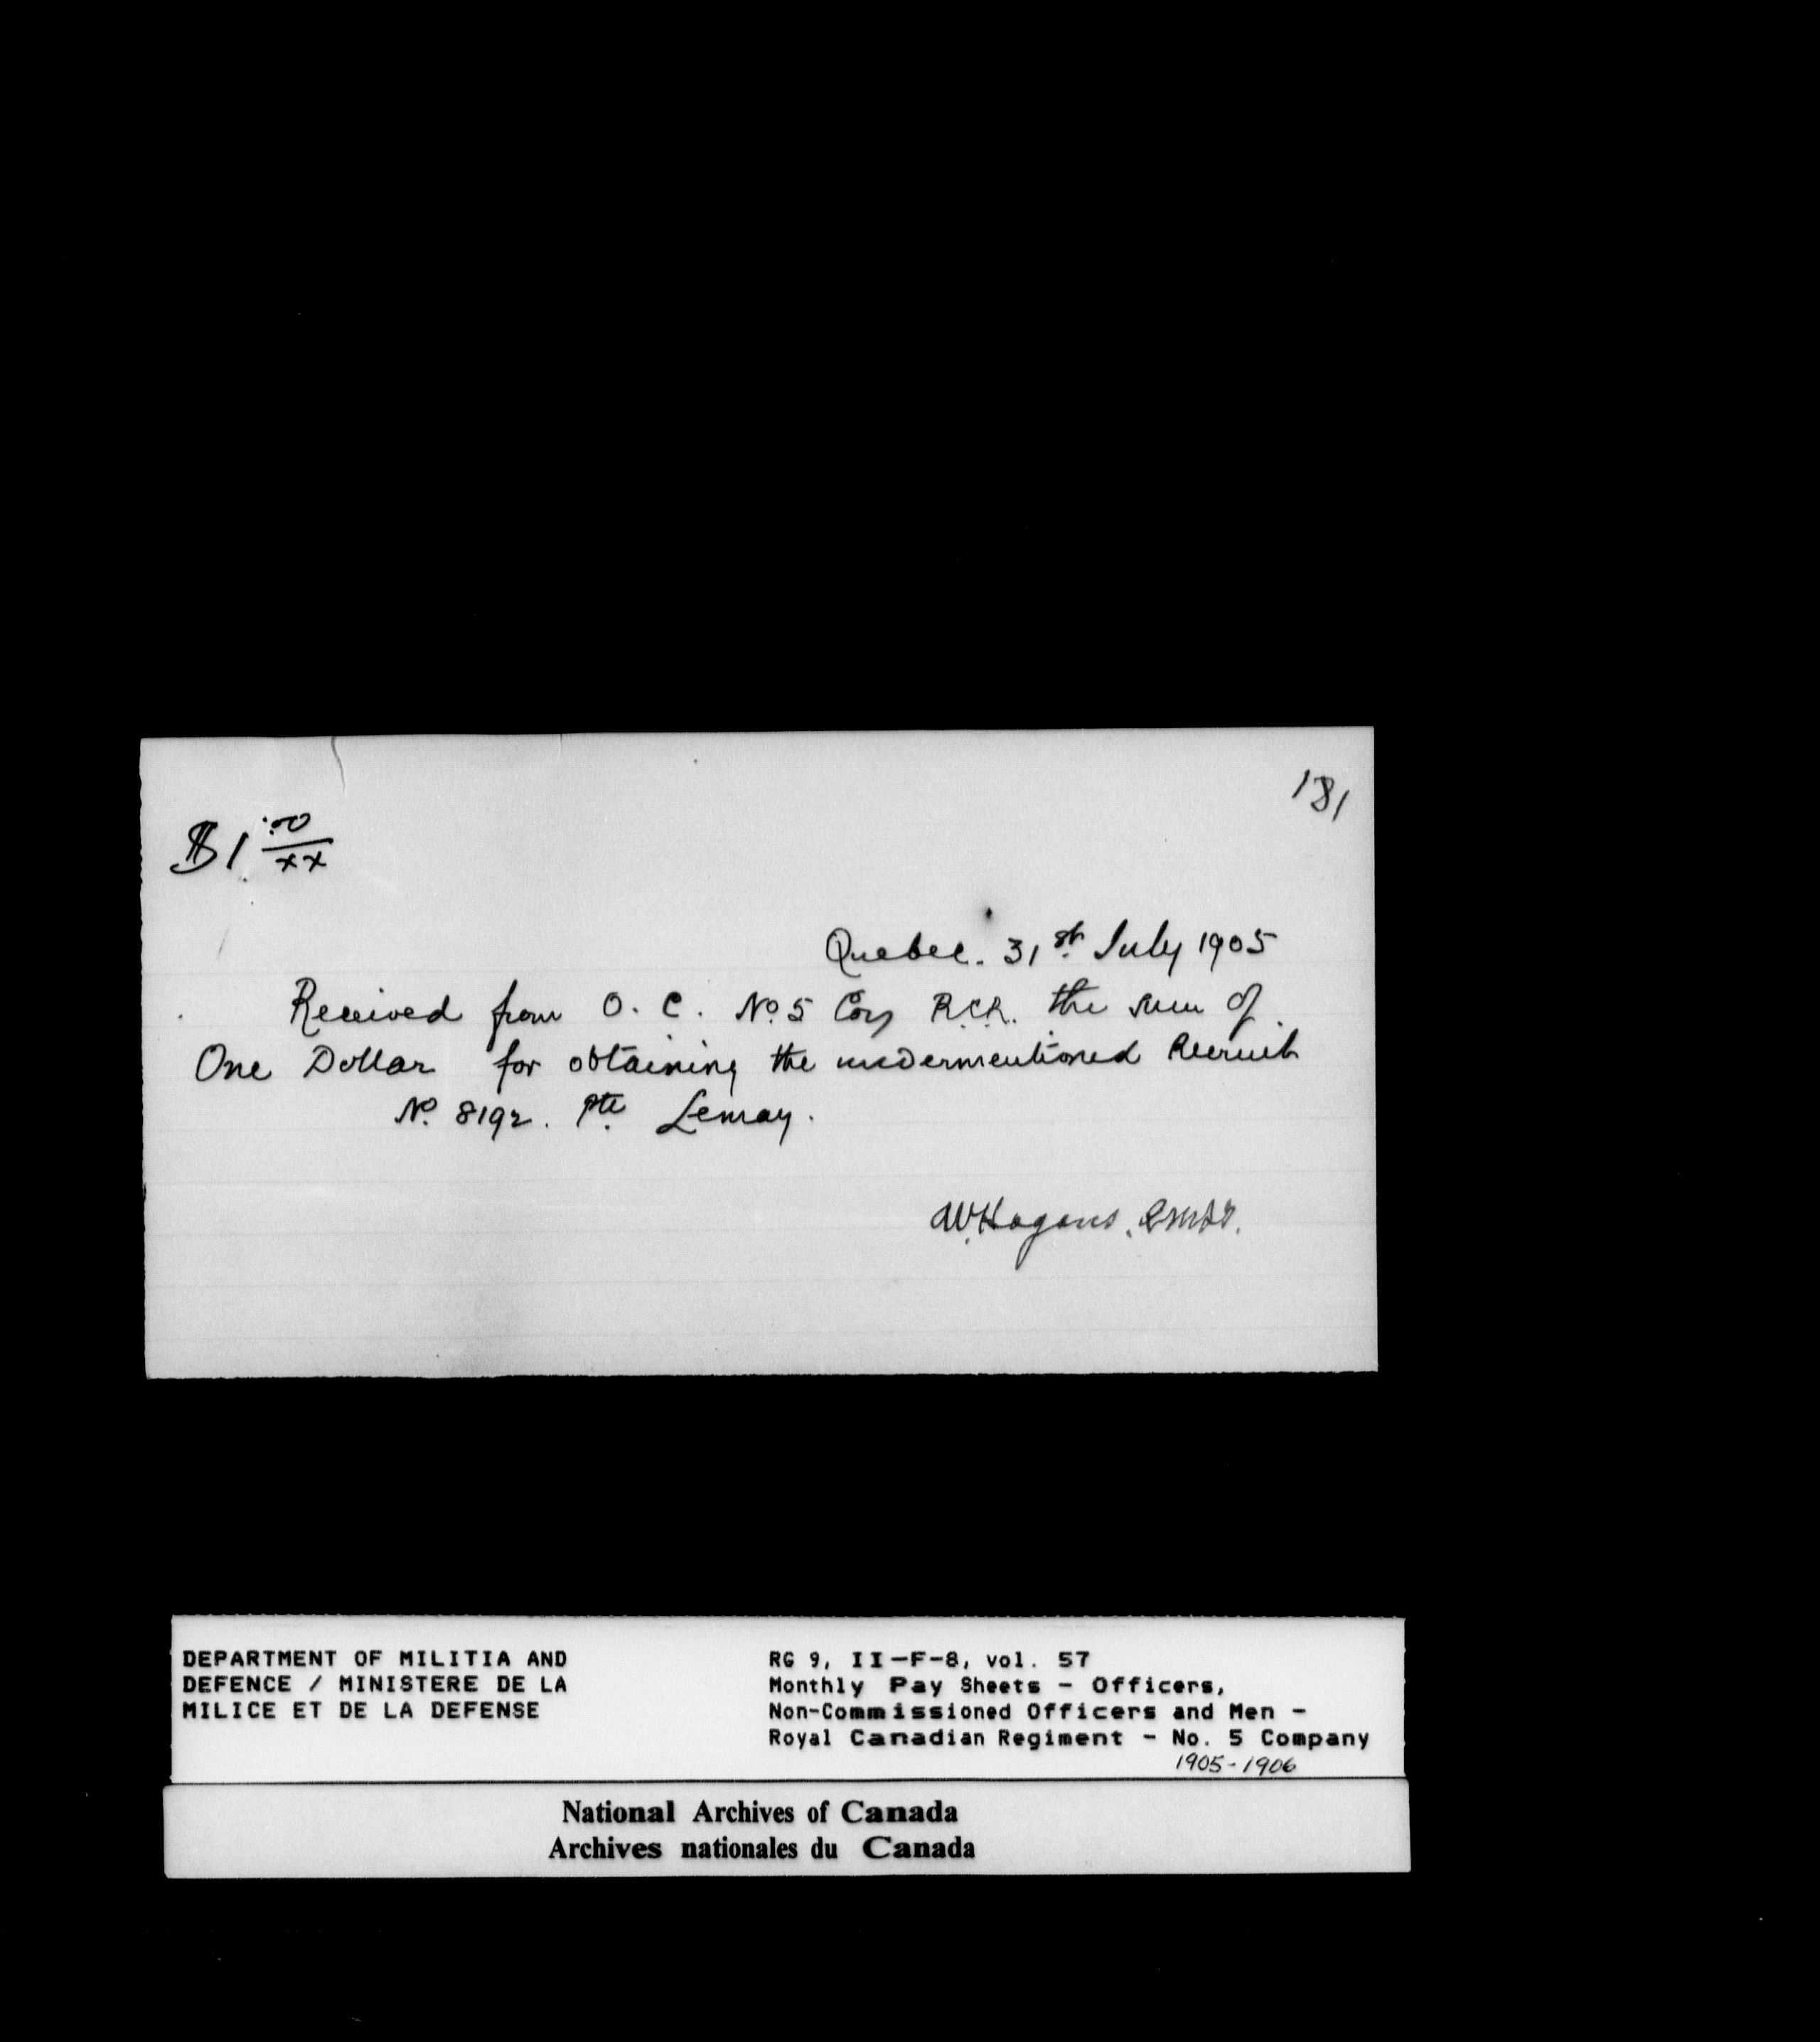 181
$1.00/xx
Quebec. 31st July 1905
Received from O. C. No. 5 Coy R.C.R. the sum of
One Dollar for obtaining the undermentioned Recruit
No. 8192. Pte Lemay.
DEPARTMENT OF MILITIA AND
DEFENCE / MINISTERE DE LA
MILICE ET DE LA DEFENSE
RG 9, II-F-8, vol. 57
Monthly Pay Sheets - Officers,
Non-Commissioned Officers and Men -
Royal Canadian Regiment - No. 5 Company
1905-1906
National Archives of Canada
Archives nationales du Canada